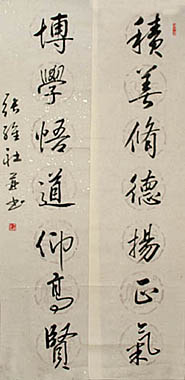 積善脩德揚正氣
博學悟道仰高賢
張維社并書